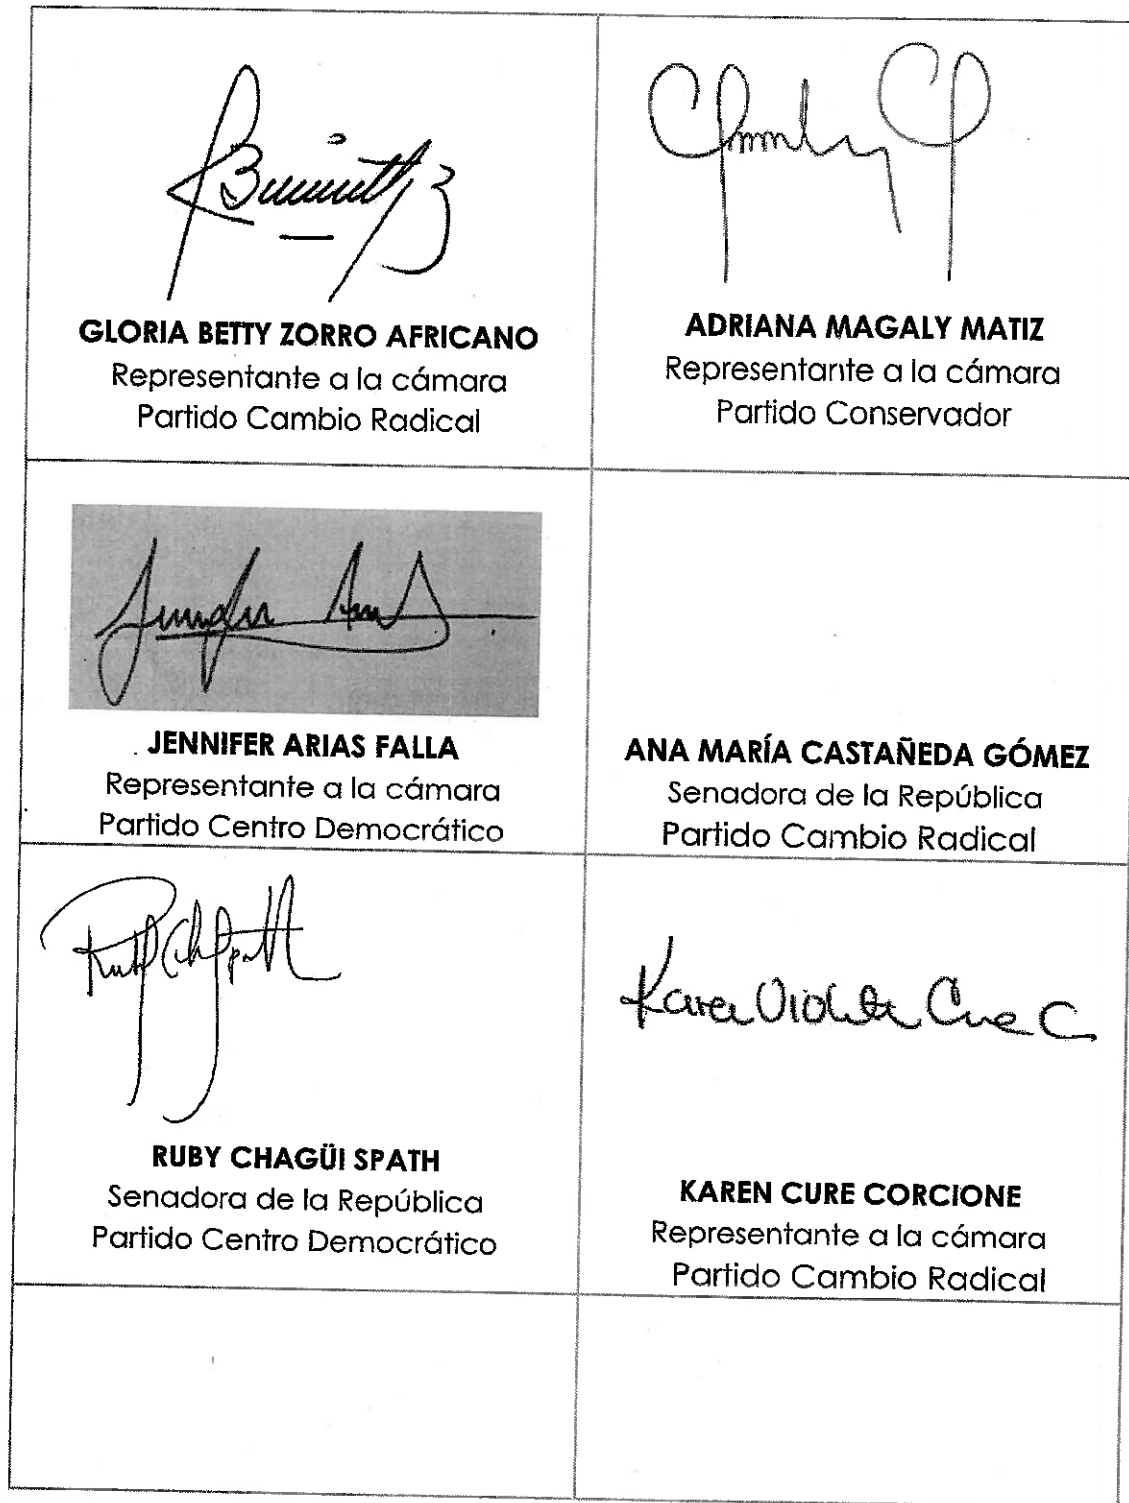 GLORIA BETTY ZORRO AFRICANO
Representante a la cámara
Partido Cambio Radical
ADRIANA MAGALY MATIZ
Representante a la cámara
Partido Conservador
JENNIFER ARIAS FALLA
Representante a la cámara
Partido Centro Democrático
ANA MARÍA CASTAÑEDA GÓMEZ
Senadora de la República
Partido Cambio Radical
RUBY CHAGÜI SPATH
Senadora de la República
Partido Centro Democrático
Karen Violeta Cure C
KAREN CURE CORCIONE
Representante a la cámara
Partido Cambio Radical